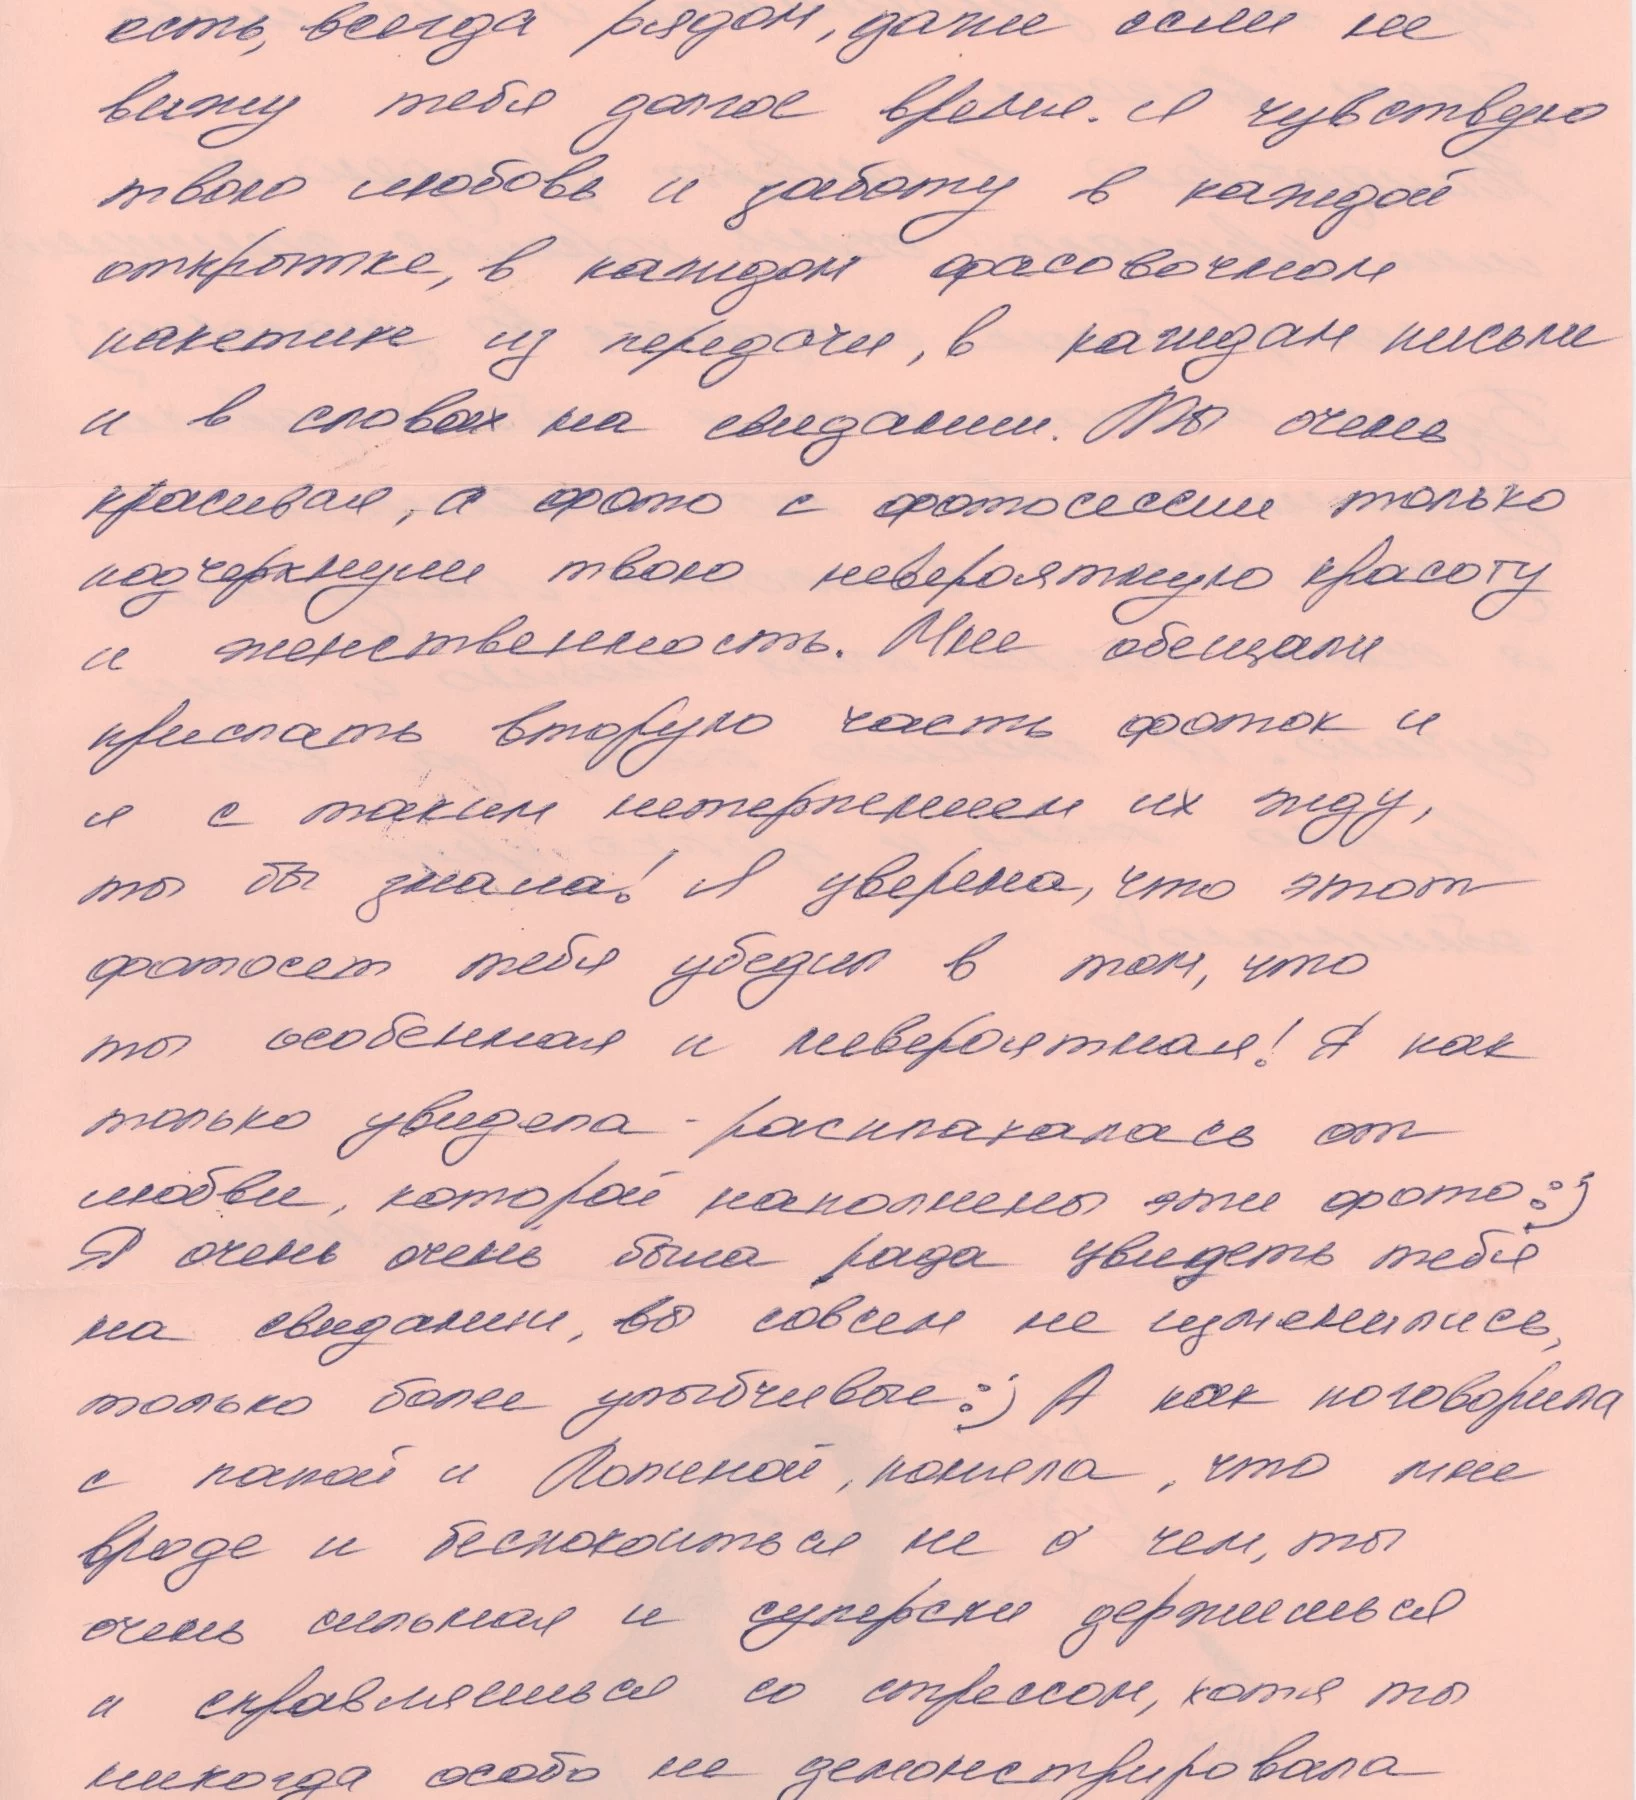 есть, всегда рядом, даже если не
вижу тебя долгое время. Я чувствую
твою любовь и заботу в каждой
открытке, в каждом фасовочном
пакетике из передачи, в каждом письме
и в словах на свидании. Ты очень
красивая, а фото с фотосессии только
подчеркнули твою невероятную красоту
и женственность. Мне обещали
прислать вторую часть фоток и
я с таким нетерпением их жду,
ты бы знала! Я уверена, что этот
фотосет тебя убедил в том, что
ты особенная и невероятная! Я как
только увидела - расплакалась от
любви, которой наполнены эти фото :)
Я очень очень была рада увидеть тебя
на свидании, вы совсем не изменились,
только более улыбчивые :) А как поговорила
с папой и, поняла, что мне
вроде и беспокоиться не о чем, ты
очень сильная и суперски держишься
и справляешься со стрессом, хотя ты
никогда особо не демонстрировала